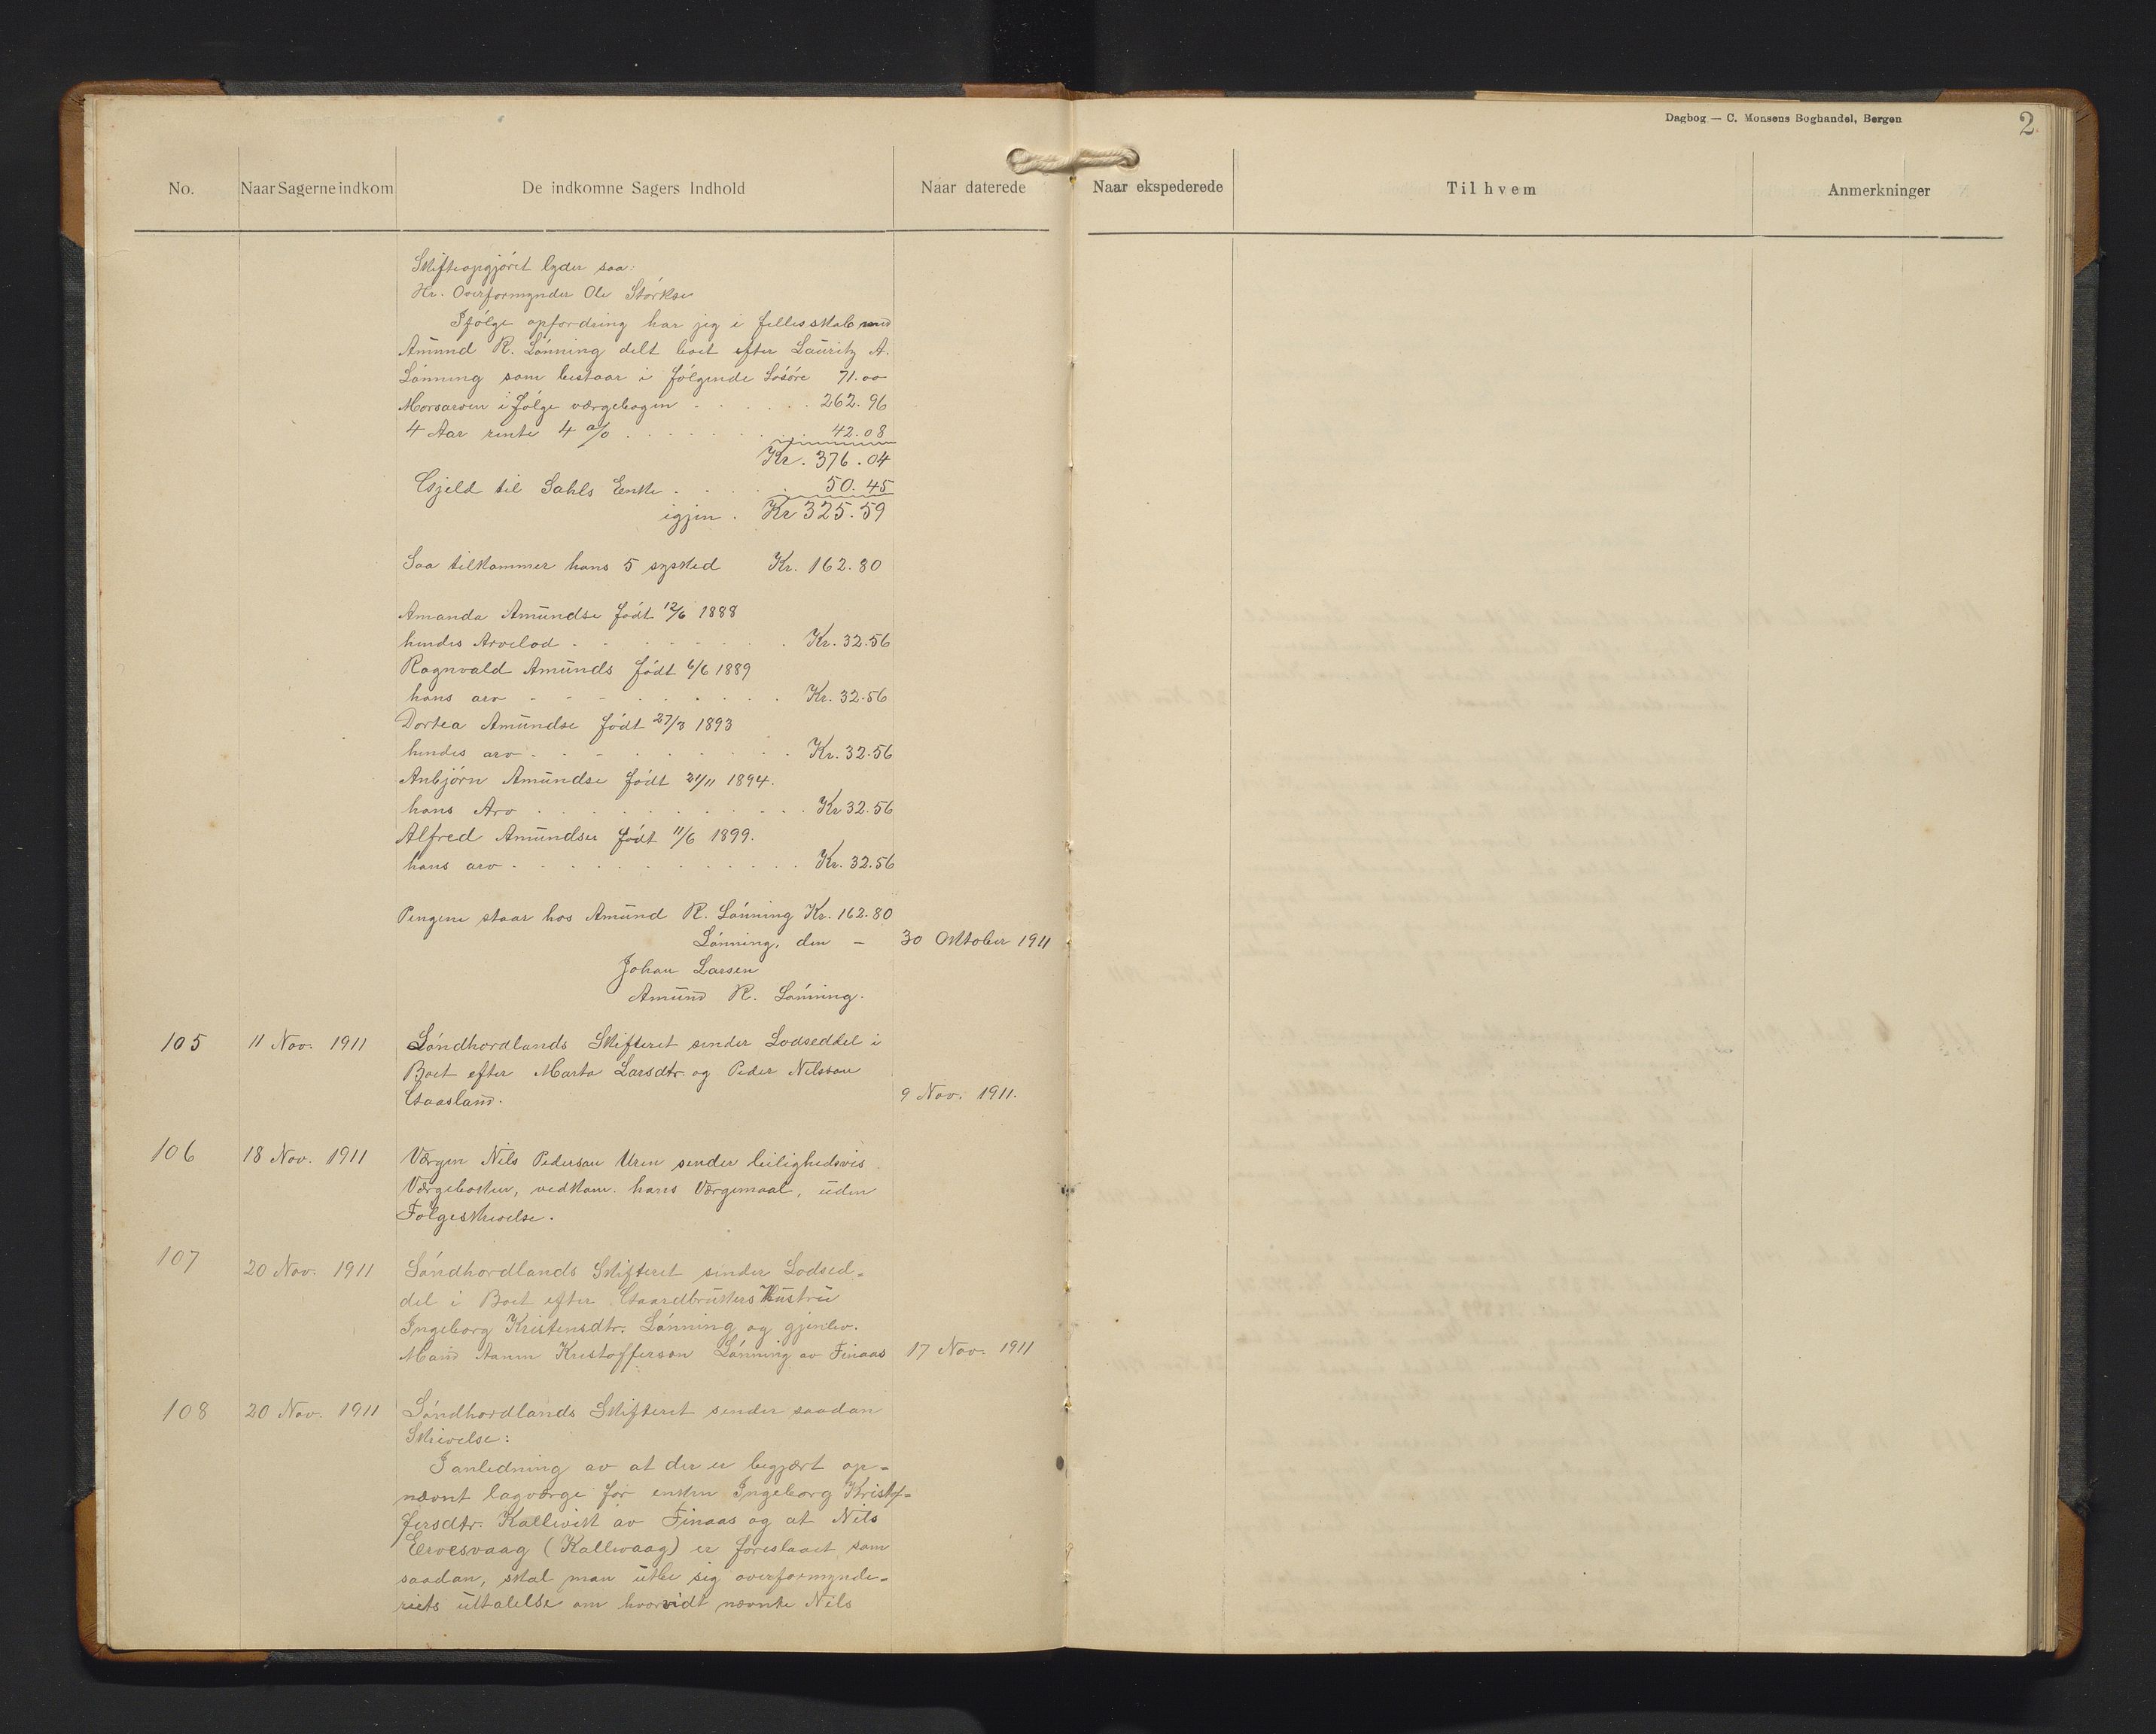 Dagbog — C. Monsens Boghandel, Bergen
2.
No. Naar Sagerne indkom De indkomne Sagers Indhold Naar daterede Naar ekspederede Til hvem Anmerkninger
Skifteopgjöret lyder saa:
Hr. Overformynder Ole Störkse
Ifölge opfordring har jeg i fellesskab med
Amund R. Lönning delt boet efter Lauritz A.
Lönning som bestaar i fölgende Lösöre 71.00
Morsarven i fölge værgebogen . . . . . . 262.96
4 Aar rente 4 % . . . . . . . 42.08
Kr. 376.04
Gjeld til Sahls Enke . . . . . 50.45
igjen . Kr 325.59
Saa tilkommer hans 5 sysked Kr. 162.80
Amanda Amundse födt 12/6 1888
hendes Arvelod . . . . . . . Kr. 32.56
Ragnvald Amunds födt 6/6 1889
hans arv . . . . . . . . Kr. 32.56
Dortea Amundse födt 27/3 1893
hendes arv . . . . . . . . Kr. 32.56
Anbjörn Amundse födt 21/11 1894.
hans Arv . . . . . . . . Kr 32.56
Alfred Amundsen födt 11/6 1899.
hans arv . . . . . . . . . Kr. 32.56
Pengene staar hos Amund R. Lönning Kr. 162.80
Lönning, den — 30 Oktober 1911
Johan Larsen
Amund R. Lönning.
105 11 Nov. 1911 Söndhordlands Skifteret sender Lodseddel i
Boet efter Marta Larsdtr. og Peder Nilssøn
Gaasland. 9 Nov. 1911.
106 18 Nov. 1911 Værgen Nils Pedersøn Uren sender leilighedsvis
Værgeboken, vedkom. hans Værgemaal, uden
Fölgeskrivelse.
107 20 Nov. 1911 Söndhordlands Skifteret sender Lodsed-
del i Boet efter Gaardbrukers Hustru
Ingeborg Kristensdtr. Lönning og gjenlev.
Mand Aamu Kristofferson Lönning av Finaas 17 Nov. 1911
108 20 Nov. 1911 Söndhordlands Skifteret sender saadan
Skrivelse:
I anledning av at der er begjært op-
nævnt lagværge for enken Ingeborg Kristof-
fersdtr. Kallevik av Finaas og at Nils
Ervesvaag (Kallevaag) er foreslaaet som
saadan, skal man utbe sig overformynde-
riets uttalelse om hvorvidt nævnte Nils